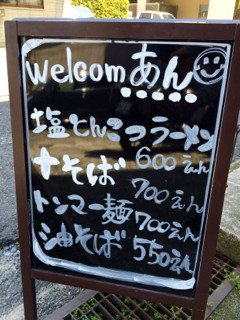 welcomあん
塩とんこつラーメン
600えん
十そば
700えん
トンマー麺700えん
油そば 550えん